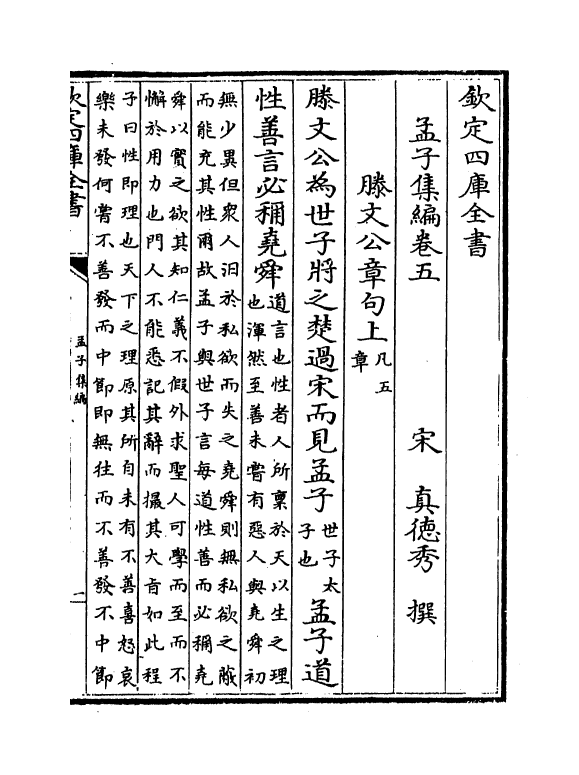 欽定四庫全書
孟子集編卷五
宋 真德秀 撰
滕文公章句上凡五
章
滕文公為世子將之楚過宋而見孟子世子太
子也孟子道
性善言必稱堯舜道言也性者人所稟於天以生之理
也渾然至善未嘗有惡人與堯舜初
無少異但衆人汨於私欲而失之堯舜則無私欲之蔽
而能充其性爾故孟子與世子言每道性善而必稱堯
舜以實之欲其知仁義不假外求聖人可學而至而不
懈於用力也門人不能悉記其辭而撮其大旨如此程
子曰性即理也天下之理原其所自未有不善喜怒哀
樂未發何嘗不善發而中節即無往而不善發不中節
欽定四庫全書
孟子集編
一